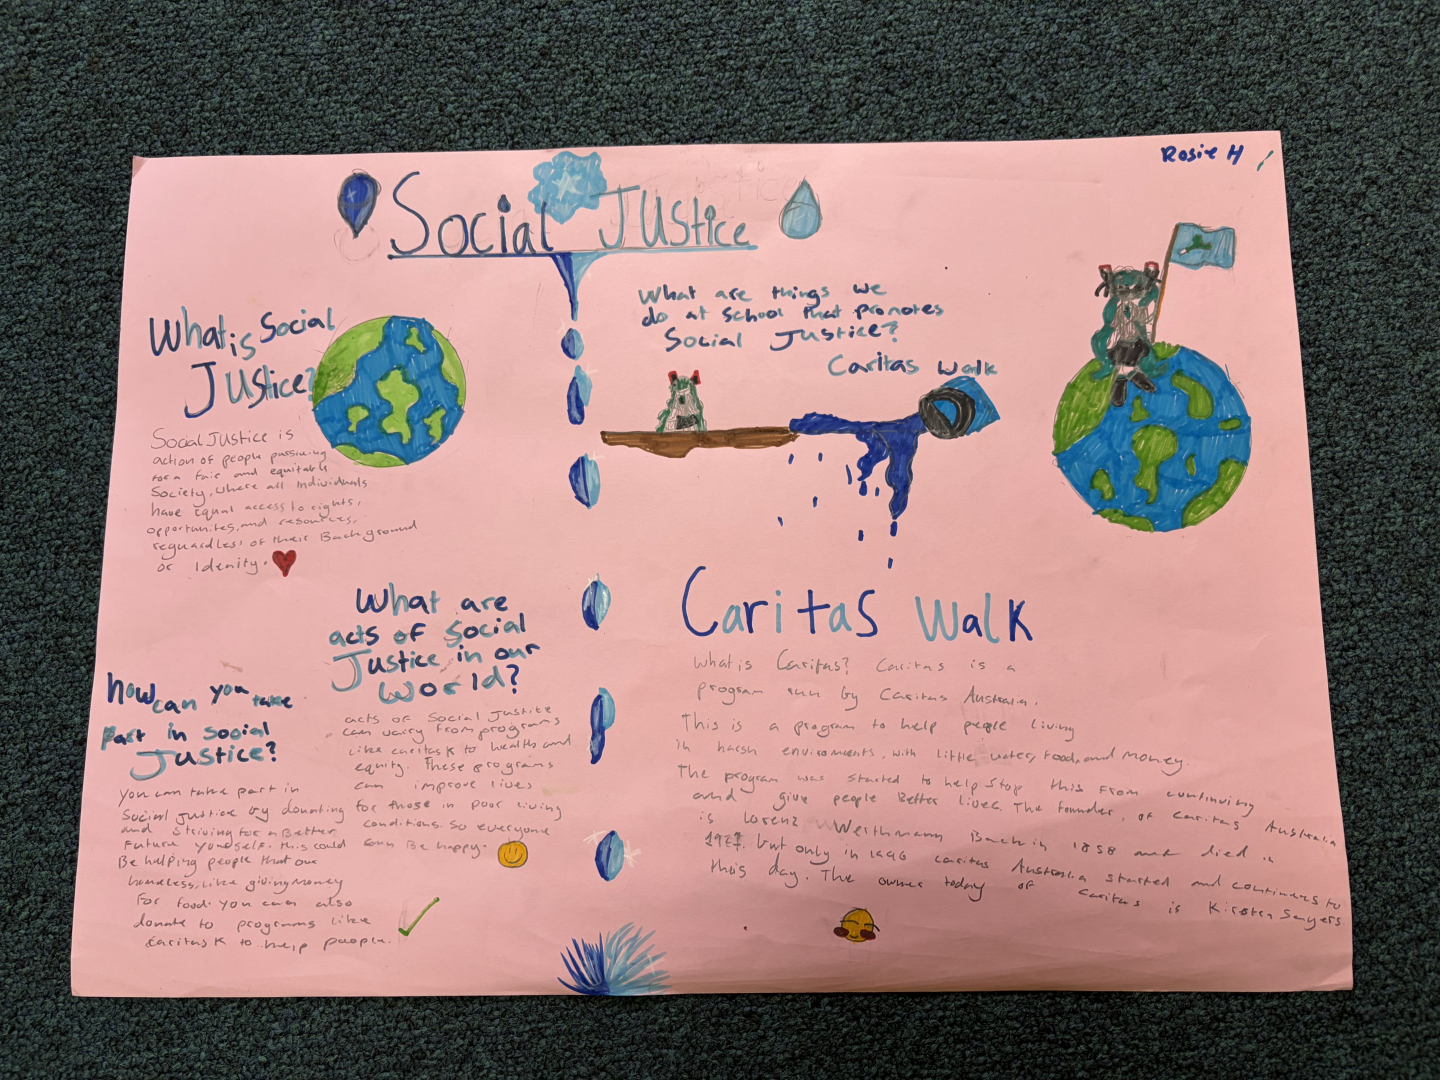 Rosie H
Social Justice
What is Social
Justice?
Social Justice is
action of people pursuing
for a fair and equitable
Society, where all individuals
have equal access to rights,
opportunites, and resources,
reguardless of their Background
or Idenity.
What are
acts of Social
Justice in our
World?
acts of Social Justice
can vary from programs
like caritas K to health and
equity. These programs
can improve lives
for those in poor living
conditions. So everyone
can Be happy.
how can you take
part in social
Justice?
You can take part in
Social Justice by donating
and striving for a Better
Future yourself. this could
Be helping people that are
homeless, like giving money
for food. you can also
donate to programs like
Caritas K to help people.
What are things we
do at School that promotes
Social Justice?
Caritas walk
Caritas Walk
What is Caritas? Caritas is a
program run by Caritas Australia.
This is a program to help people living
in harsh enviroments, with little water, food, and money.
The program was started to help stop this from continuing
and give people Better lives. The founder, of Caritas Australia
is Lorenz Werthmann Back in 1858 and died in
1921. but only in 1996 Caritas Australia started and continues to
this day. The owner today of Caritas is Kirsten Sayers